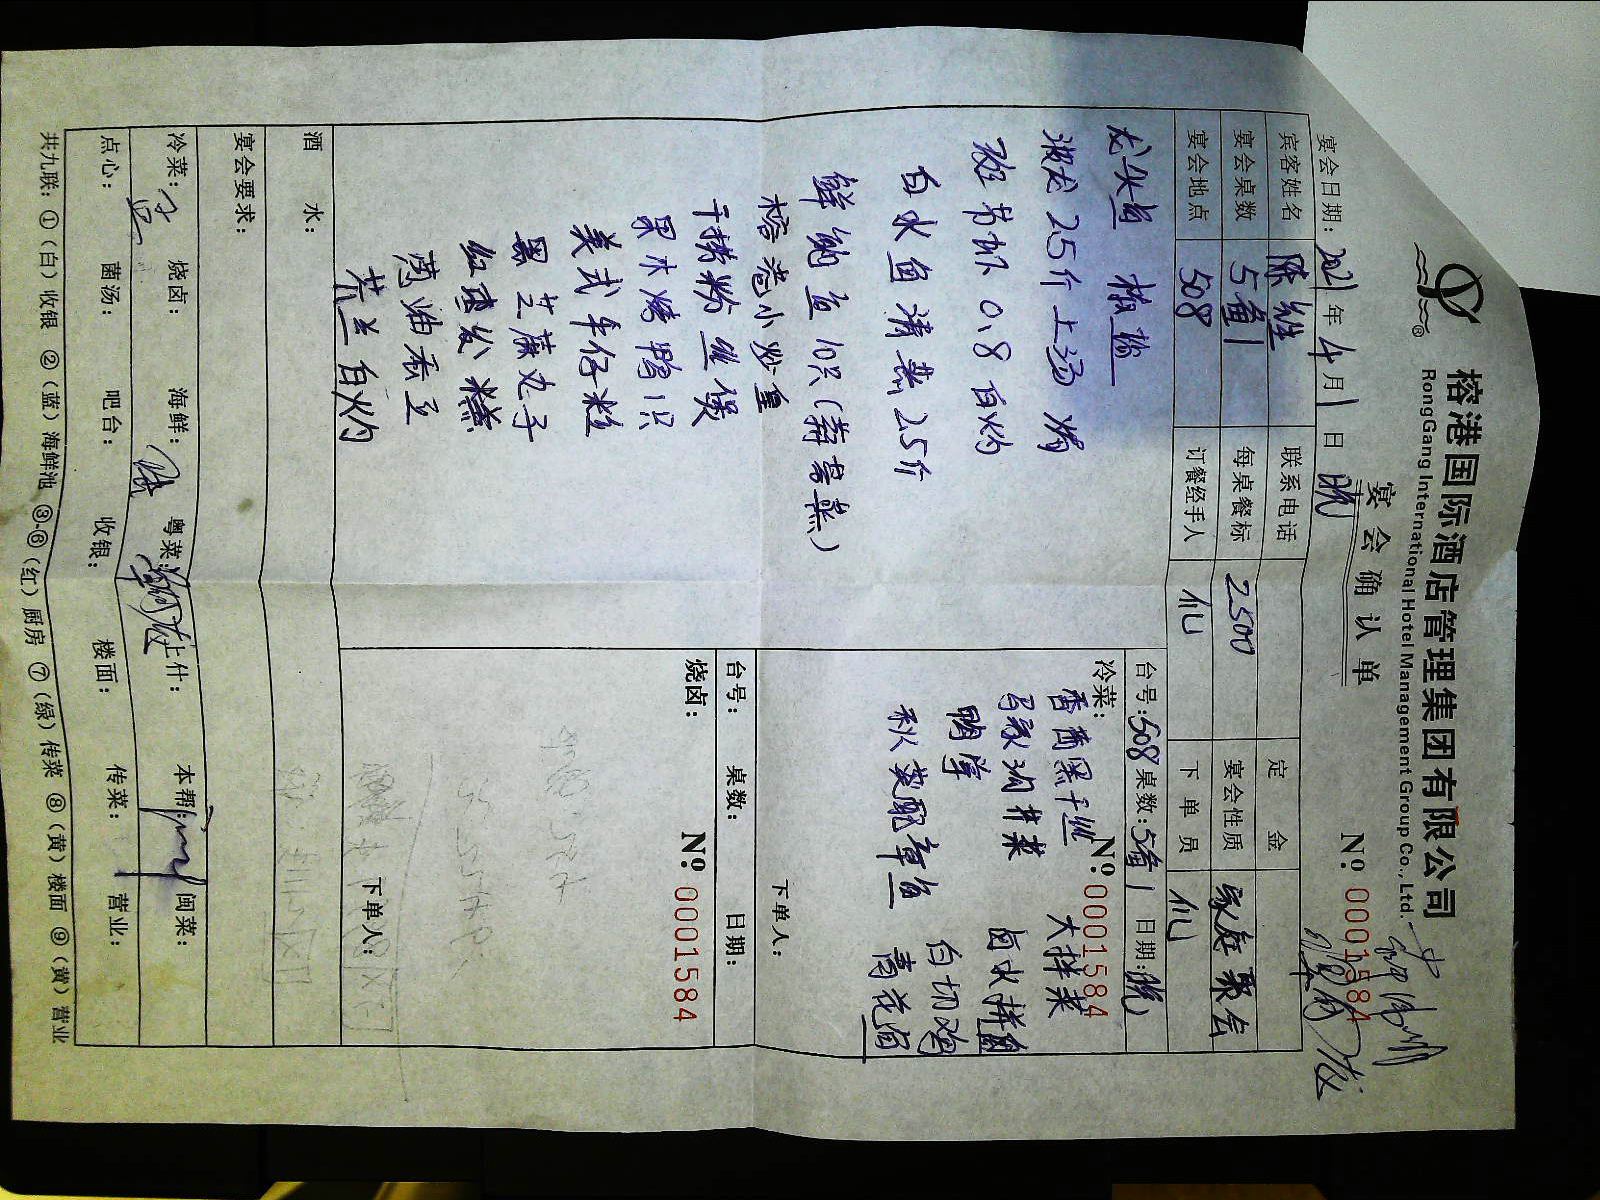 榕港国际酒店管理集团有限公司
RongGang International Hotel Management Group Co., Ltd.
宴会确认单
№ 0001584
宴会日期: 2021年4月1日 晚
宾客姓名 陈 联系电话 定金
宴会桌数 5备1 每桌餐标 2500 宴会性质 家庭聚会
宴会地点 508 订餐经手人 仏 下单员 仏
龙头鱼 椒盐
淑龙 2.5斤上汤焗
斑节虾 0.8 白灼
白水鱼清蒸 2.5斤
鲜鲍鱼 10只(蒜蓉蒸)
榕港小炒皇
干捞粉丝煲
果木烤鸭1只
美式牛仔粒
黑芝麻丸子
红枣发糕
葱油蚕豆
芥兰白灼
台号:508 桌数:5备1 日期:晚
冷菜:
№ 0001584
大拌菜
卤水拼盘
鸭胗
白切鸡
秋葵配章鱼
下单人:
台号: 桌数: 日期:
烧卤:
№ 0001584
下单人:
酒水:
宴会要求:
冷菜: 烧卤: 海鲜: 粤菜: 上什: 本帮: 闽菜:
点心: 菌汤: 吧台: 收银: 楼面: 传菜: 营业:
共九联: ①(白)收银 ②(蓝)海鲜池 ③-⑥(红)厨房 ⑦(绿)传菜 ⑧(黄)楼面 ⑨(黄)营业